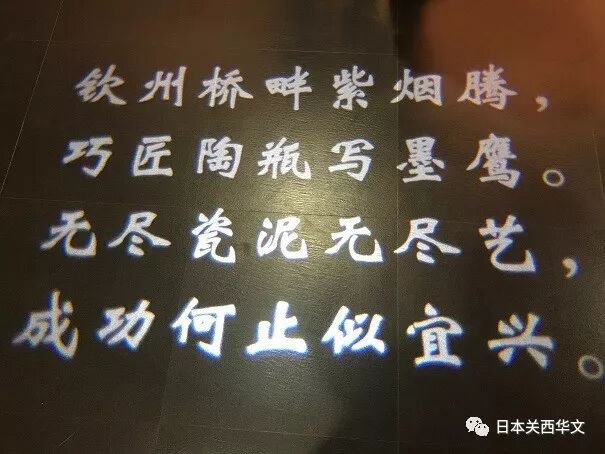 钦州桥畔紫烟腾，
巧匠陶瓶写墨鹰。
无尽瓷泥无尽艺，
成功何止似宜兴。
日本关西华文